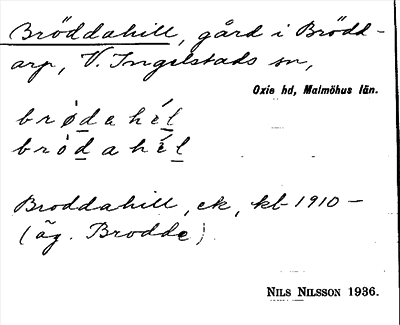 Bröddahill, gård i Brödd-
arp, V. Ingelstads sn,
Oxie hd, Malmöhus län.
brø̀dahél
bròdahél
Broddahill, ek, kb 1910 –
(äg. Brodde)
NILS NILSSON 1936.